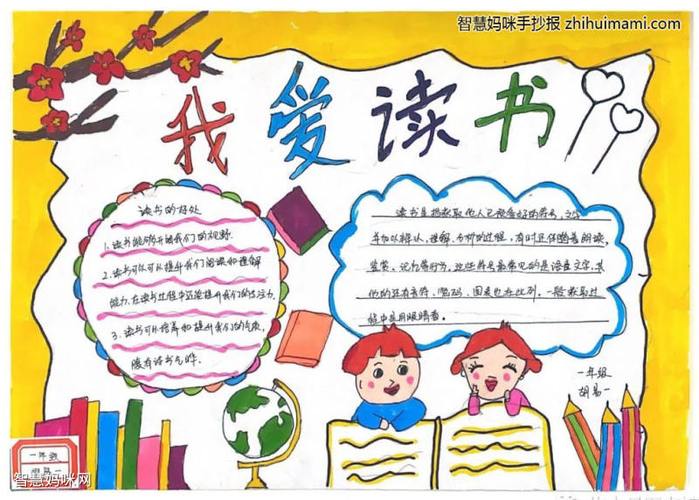 智慧妈咪手抄报 zhihuimami.com
我爱读书
读书的好处
1.读书能够开阔我们的视野.
2.读书可以可以提升我们阅读和理解
能力,在读书过程中还能提升我们的专注力.
3.读书可以培养和提升我们的气质,
腹有诗书气自华.
读书是指获取他人已预备好的符号,文字
并加以辨认、理解、分析的过程,有时还伴随着朗读、
鉴赏、记忆等行为.这些符号最常见的是语言文字,其
他的还有音符、密码、图表也在此列.一般获取过
程中是用眼睛看.
一年级
胡易一
一年级
胡易一
智慧妈咪网